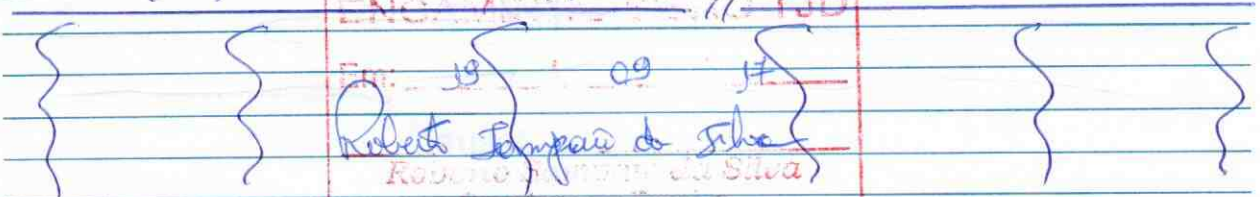 Em: 19 09 17
Roberto Sampaio da Silva
Roberto Sampaio da Silva